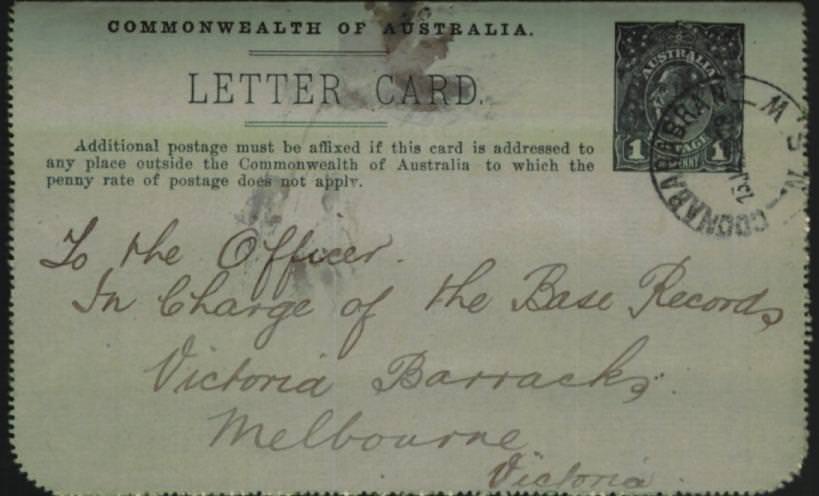 COMMONWEALTH OF AUSTRALIA.
LETTER CARD.
Additional postage must be affixed if this card is addressed to
any place outside the Commonwealth of Australia to which the
penny rate of postage does not apply.
AUSTRALIA
1 1
PENNY
COONABARABRAN
N.S.W
To the Officer.
In Charge of the Base Records
Victoria Barracks.
Melbourne
Victoria.